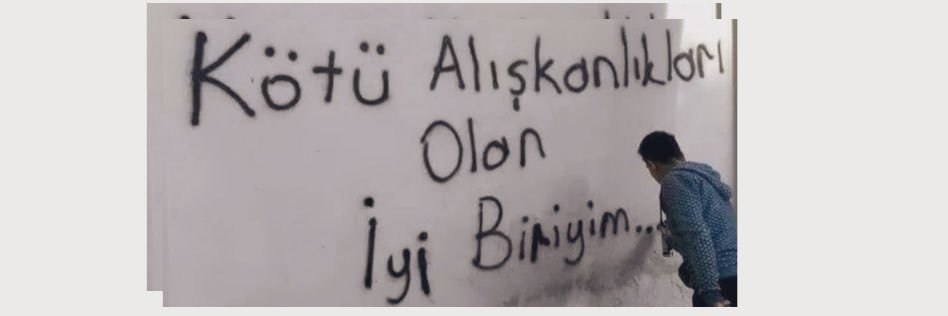 Kötü Alışkanlıkları
Olan
İyi Biriyim...